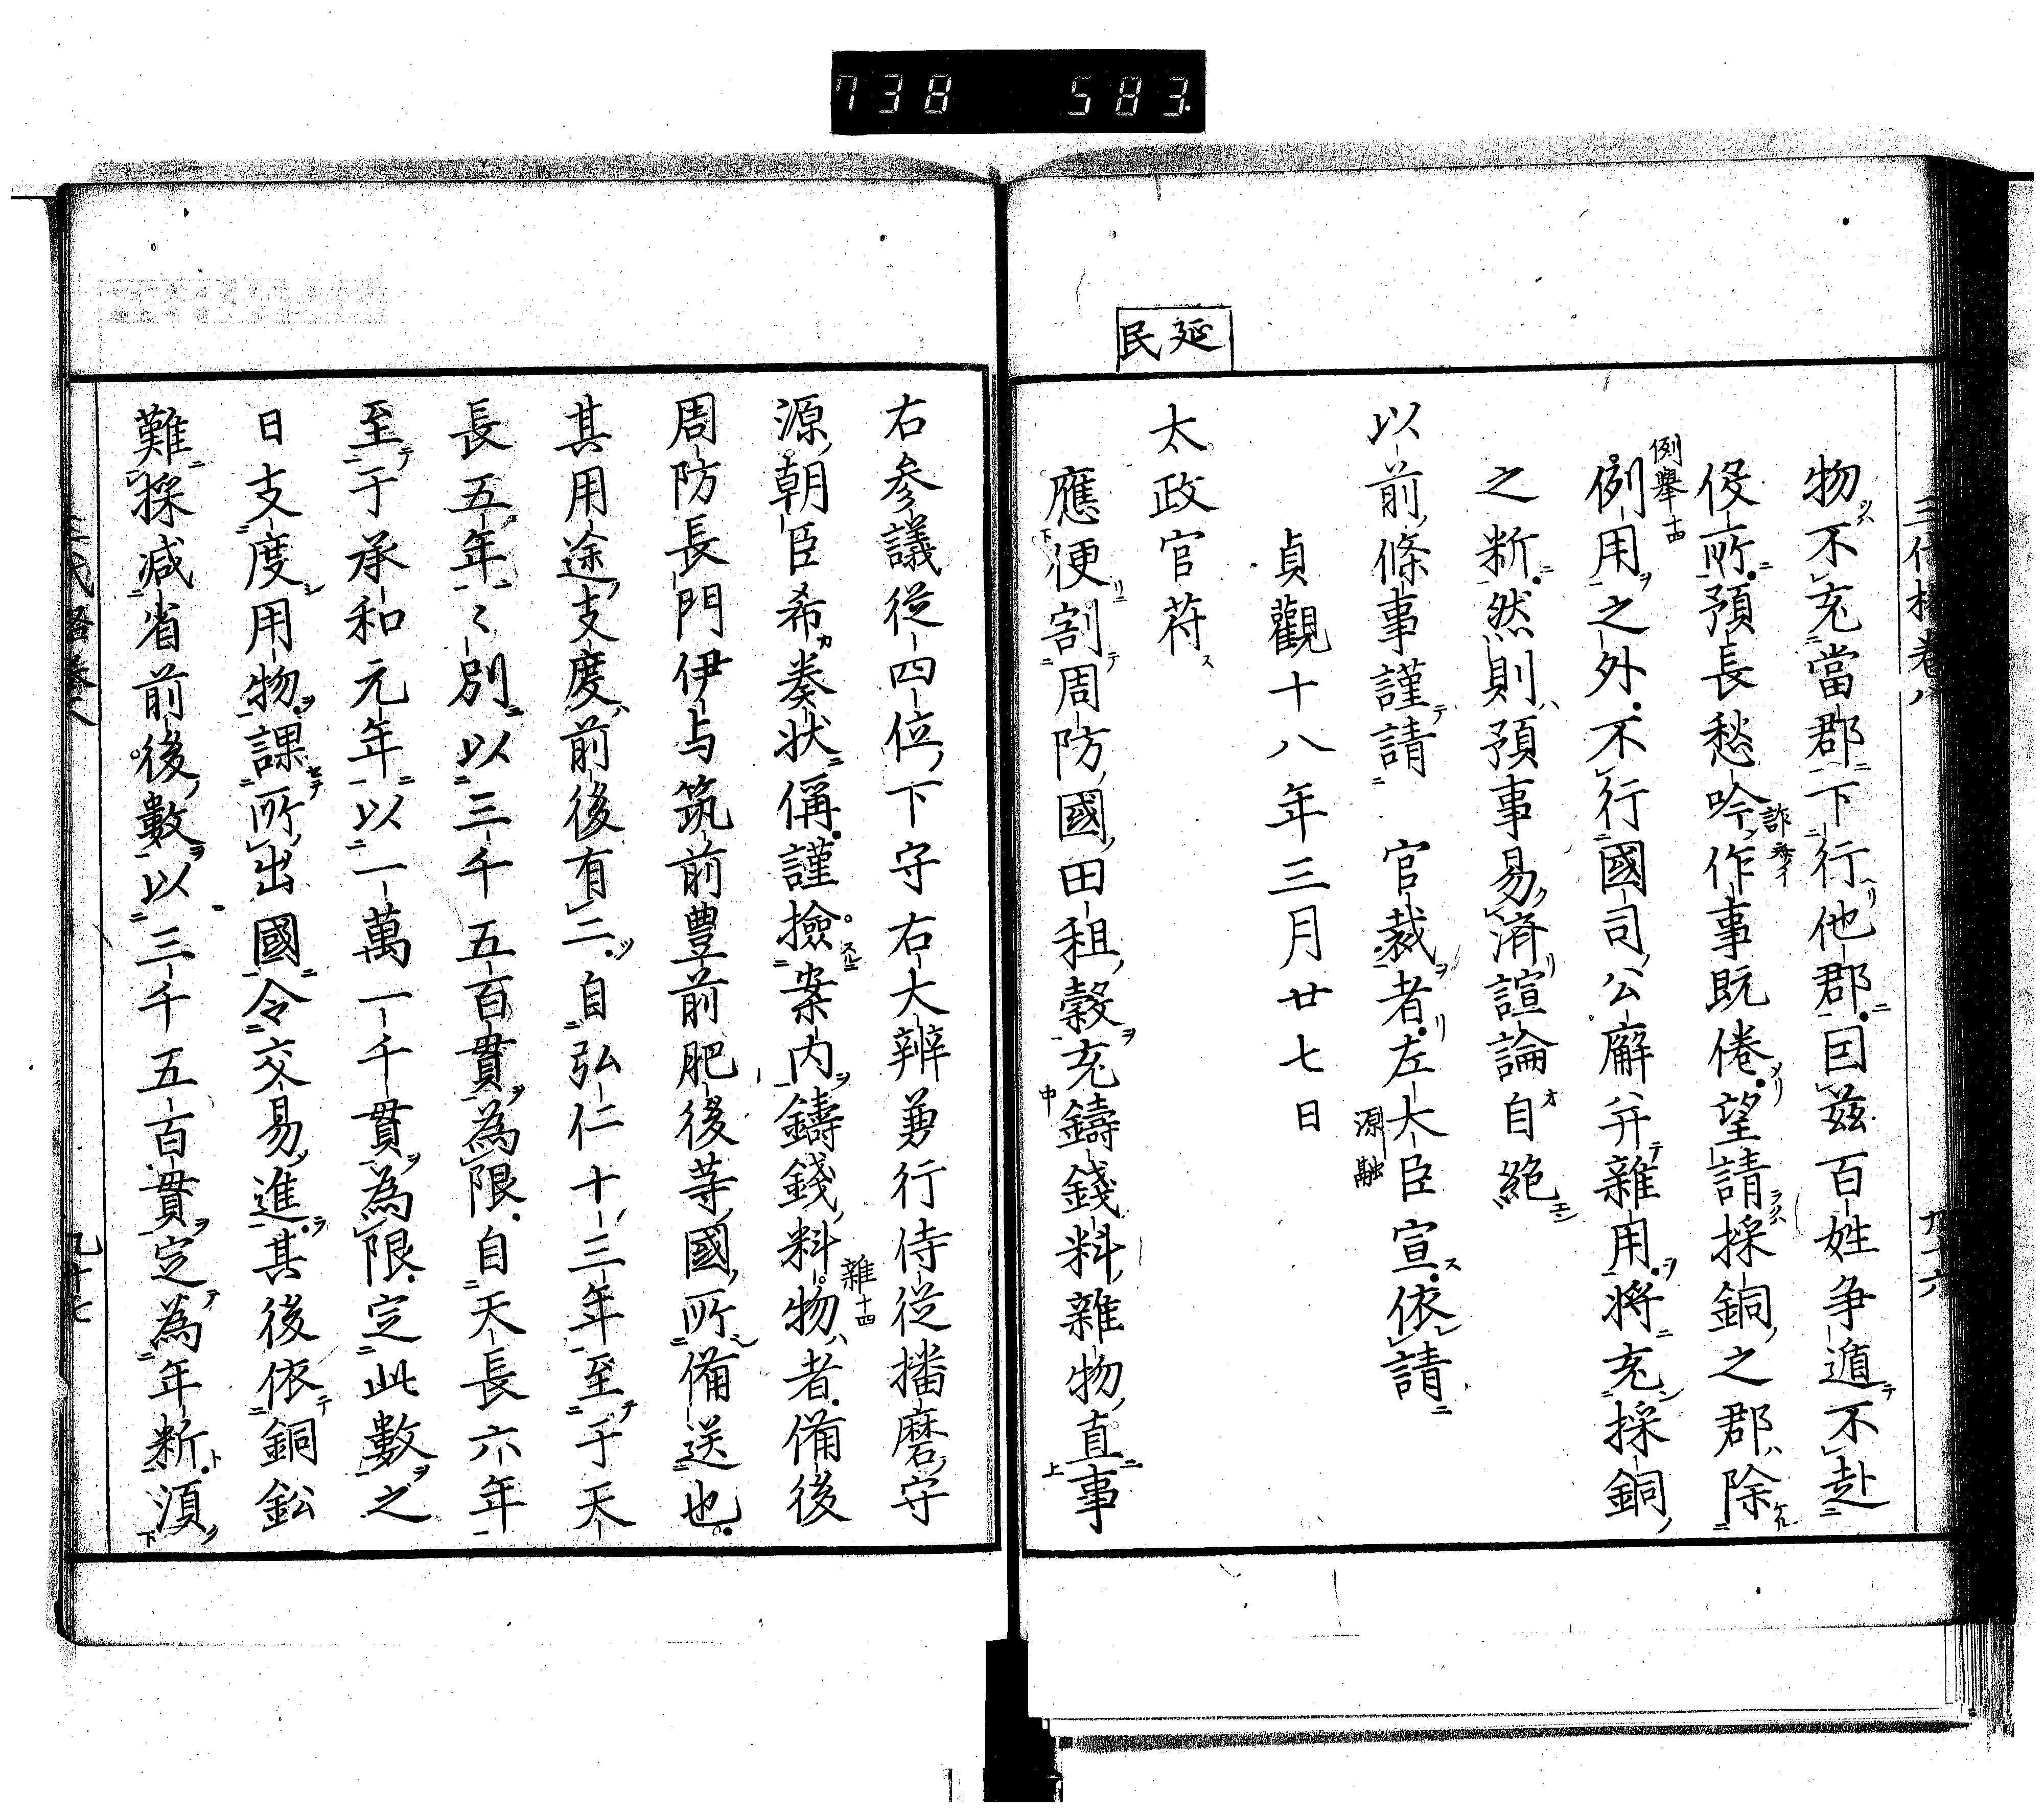 738 583
延民
三代格卷八
物不充當郡下行他郡因茲百姓争遁不赴
役所預長愁吟作事既倦望請採銅之郡除
例用之外不行國司公廨并雜用将充採銅
例舉十四
之断然則預事易済諠論自絶
以前條事謹請 官裁者左大臣宣依請
源融
貞觀十八年三月廿七日
太政官苻
應便割周防國田租穀充鑄錢料雜物直事
九十六
右参議從四位下守右大辨兼行侍從播磨守
源朝臣希奏状偁謹撿案内鑄錢料物者備後
雜十四
周防長門伊与筑前豊前肥後等國所備送也
其用途支度前後有二自弘仁十三年至于天
長五年〻別以三千五百貫為限自天長六年
至于承和元年以一萬一千貫為限定此數之
日支度用物課所出國令交易進其後依銅鈆
難採減省前後數以三千五百貫定為年断須
三代格卷八
九十七